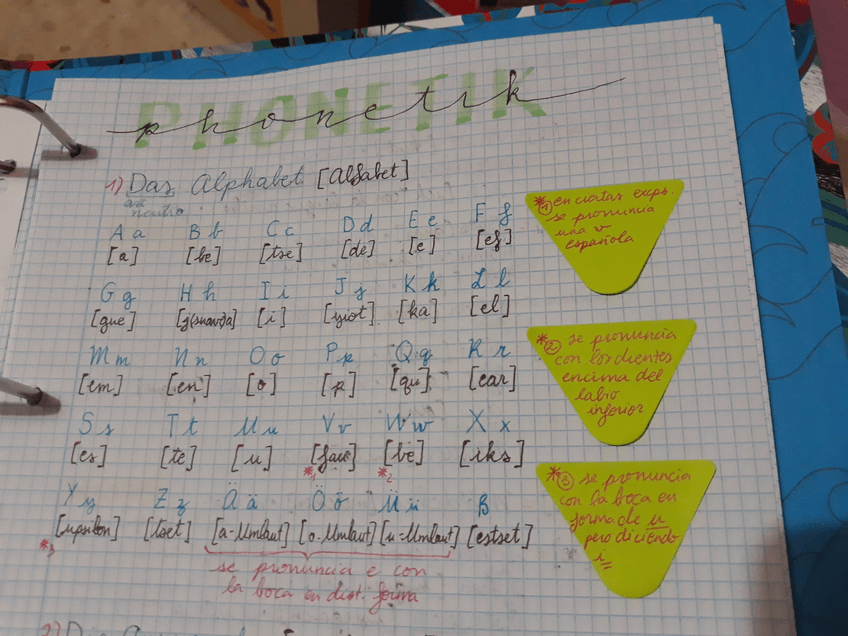 PHONETIK
phonetik
1) Das Alphabet [Alfabet]
neutro
A a B b C c D d E e F f
[a] [be] [tse] [de] [e] [ef]
G g H h I i J j K k L l
[gue] [j(suave)a] [i] [yiot] [ka] [el]
M m N n O o P p Q q R r
[em] [en] [o] [p] [qu] [ear]
S s T t U u V v W w X x
[es] [te] [u] [fau] [be] [iks]
*1 *2
Y y Z z Ä ä Ö ö Ü ü ß
[upsilon] [tset] [a-Umlaut] [o-Umlaut] [u-Umlaut] [estset]
*3
se pronuncia e con
la boca en dist. forma
*1 en ciertas exps.
se pronuncia
una v
española
*2 se pronuncia
con los dientes
encima del
labio
inferior
*3 se pronuncia
con la boca en
forma de u
pero diciendo
i
2)